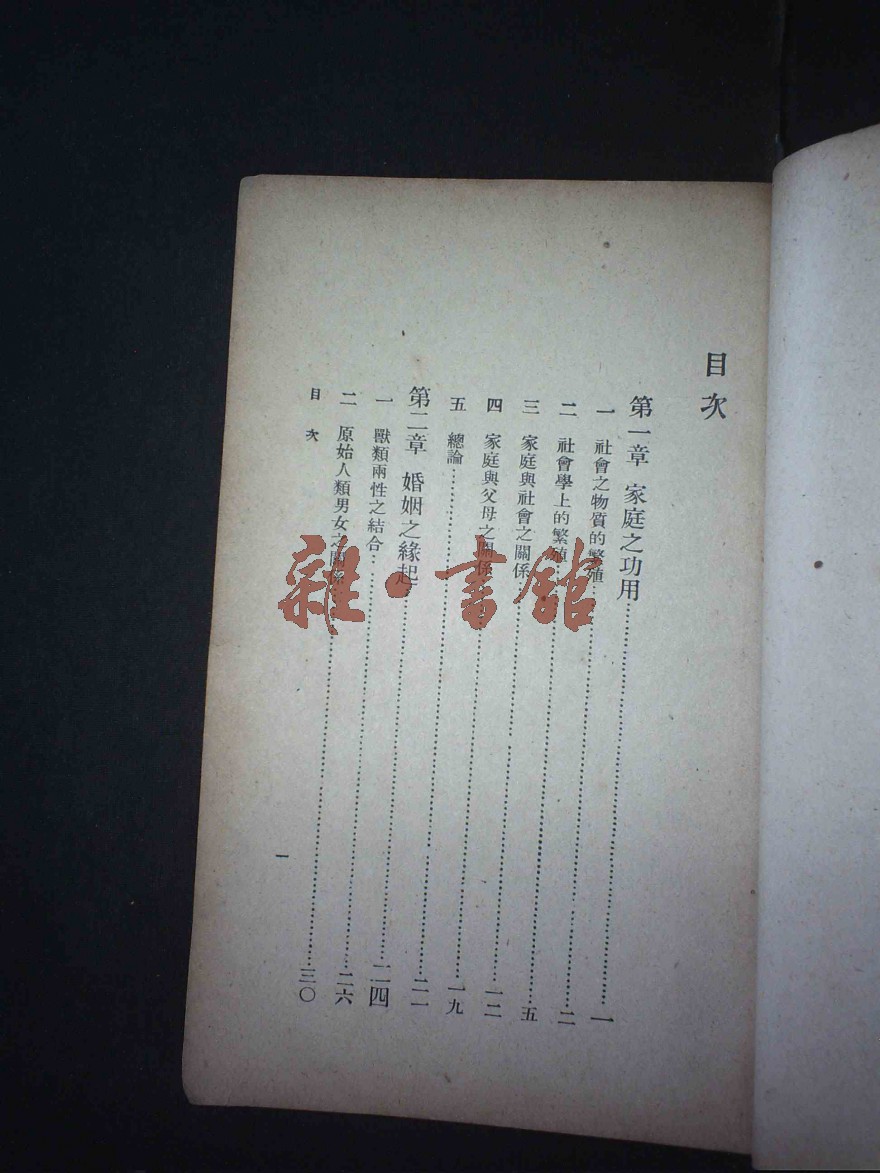 目次
第一章 家庭之功用……一
一 社會之物質的繁殖……二
二 社會學上的繁殖……五
三 家庭與社會之關係……一二
四 家庭與父母之關係……一九
五 總論……二一
第二章 婚姻之緣起……二四
一 獸類兩性之結合……二六
二 原始人類男女之關係……三〇
目次 一
雜·書館